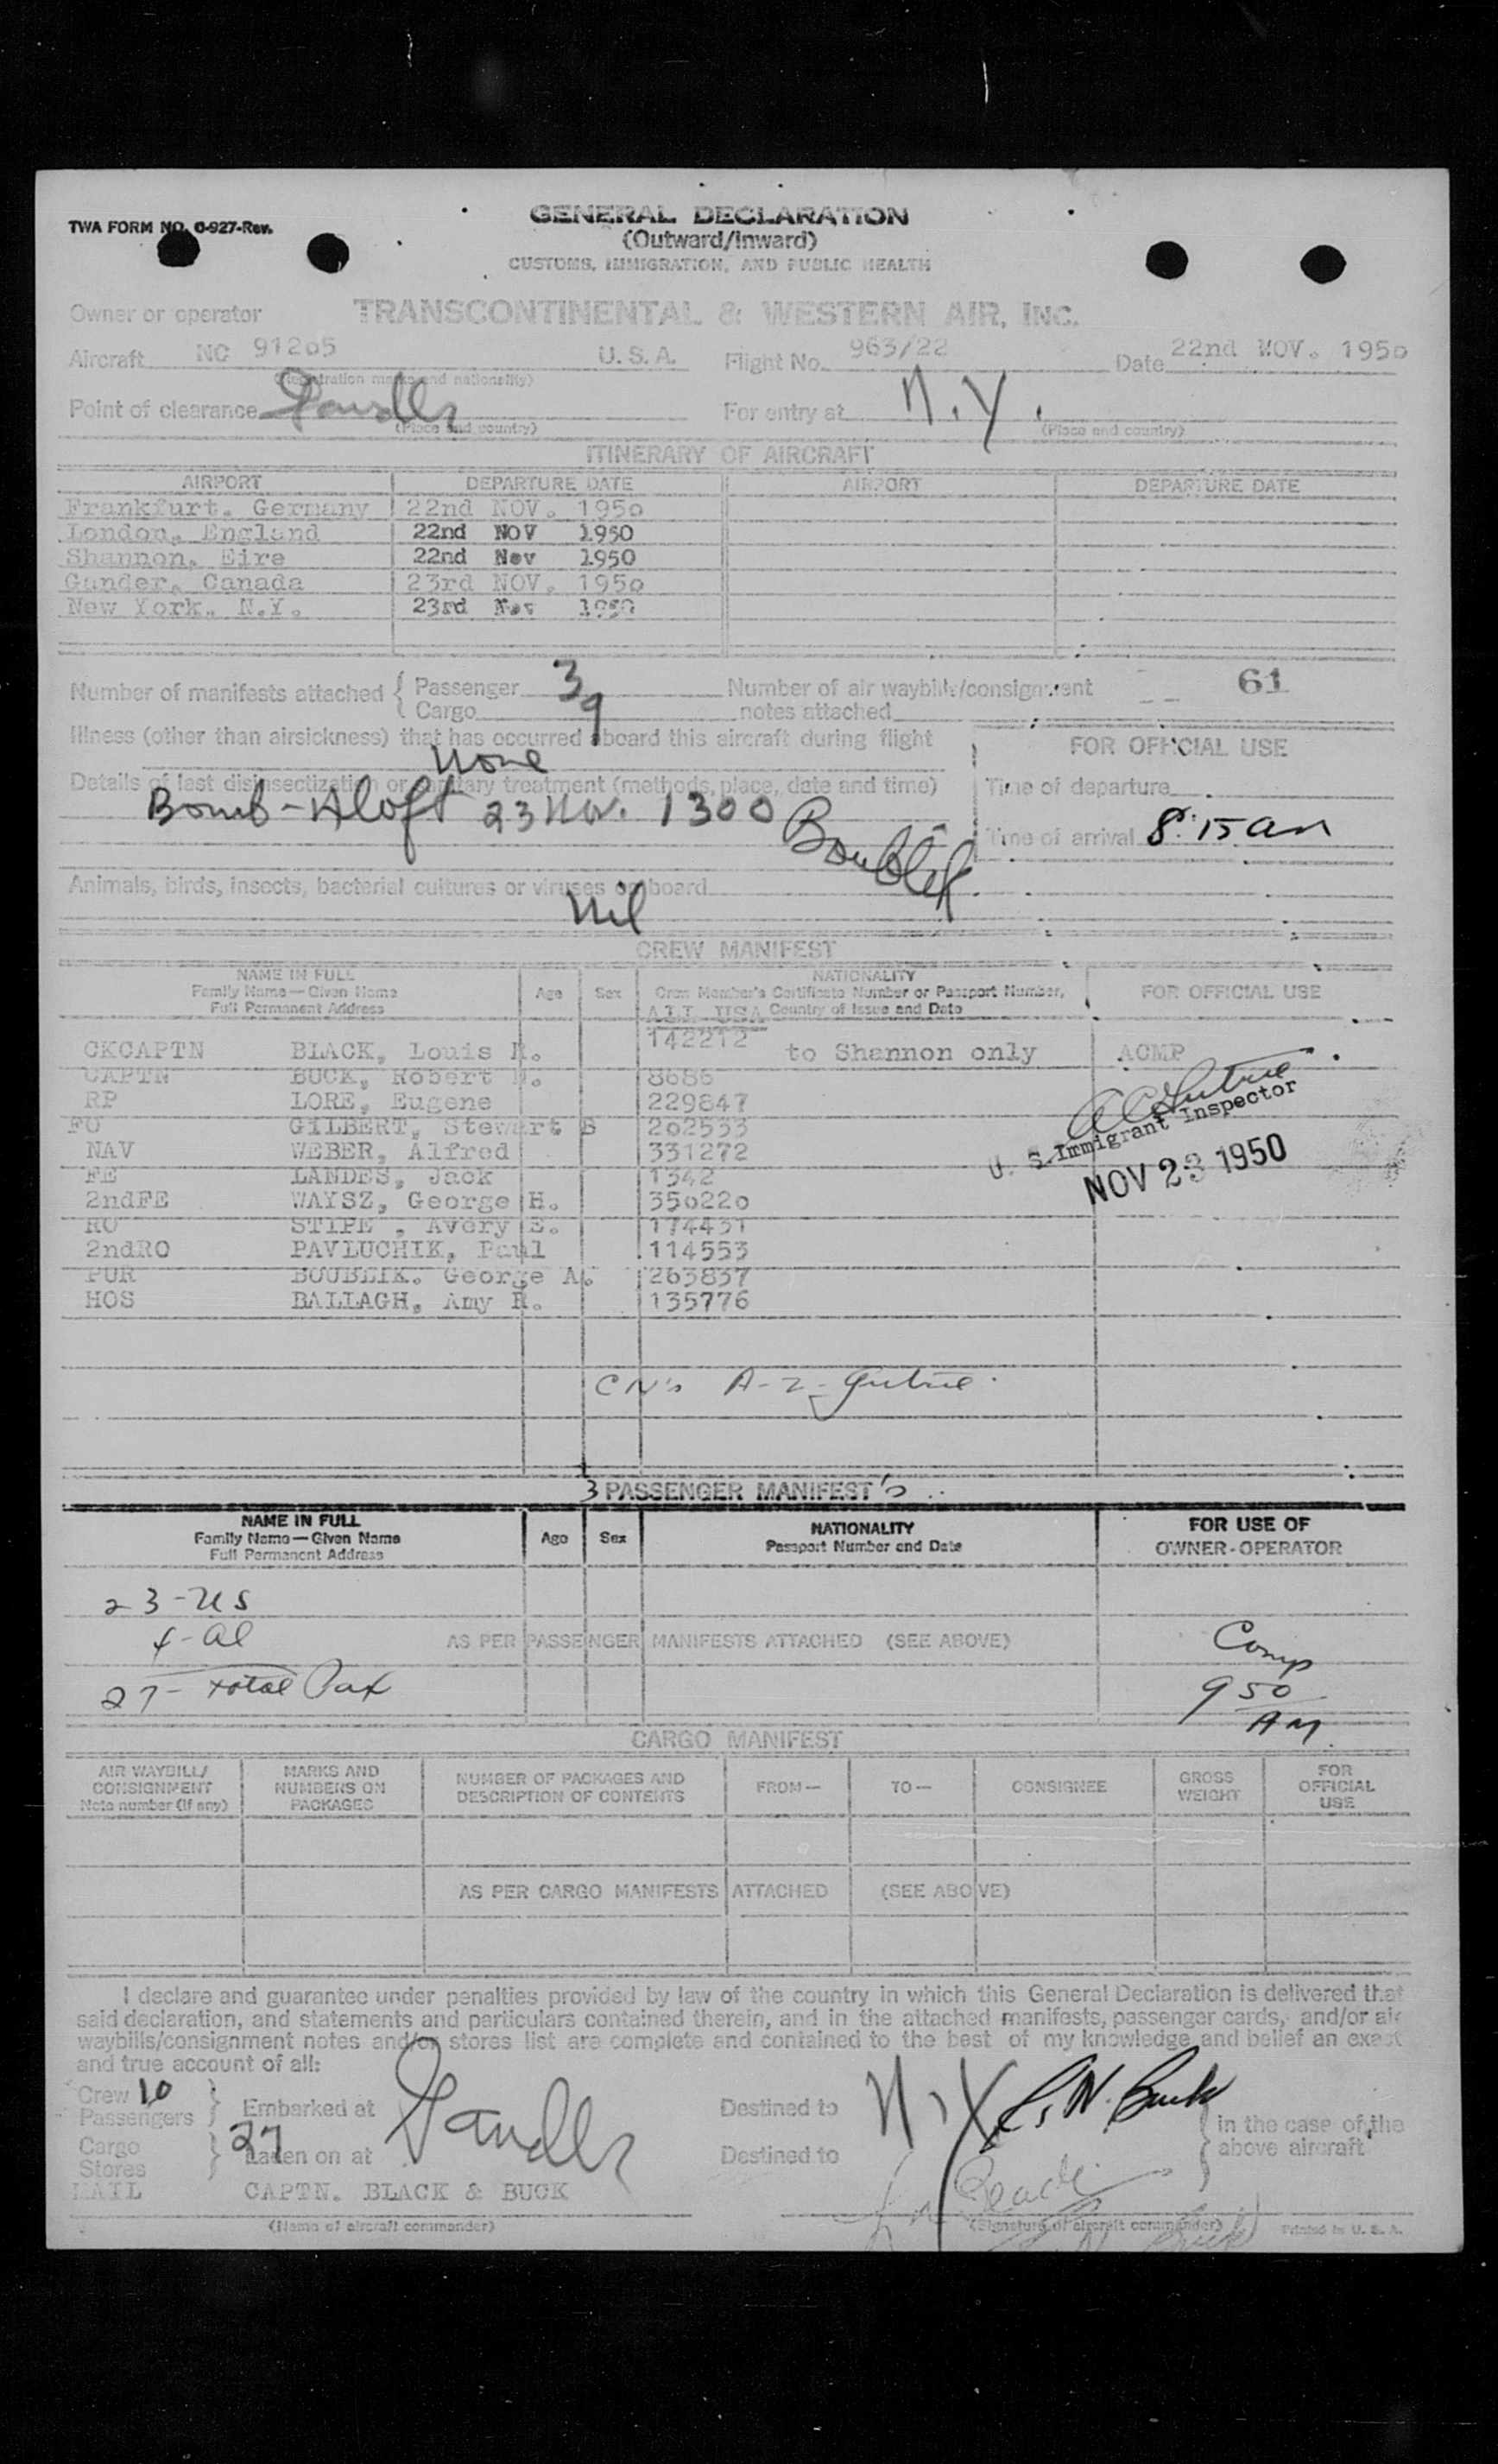 TWA FORM NO. O-927-Rev.
GENERAL DECLARATION
(Outward/Inward)
CUSTOMS, IMMIGRATION, AND PUBLIC HEALTH
Owner or operator TRANSCONTINENTAL & WESTERN AIR, INC.
Aircraft NC 91205 U. S. A. Flight No. 963/22 Date 22nd NOV. 1950
(Registration marks and nationality)
Point of clearance Gander For entry at N.Y.
(Place and country) (Place and country)
ITINERARY OF AIRCRAFT
AIRPORT DEPARTURE DATE AIRPORT DEPARTURE DATE
Frankfurt. Germany 22nd NOV. 1950
London, England 22nd NOV 1950
Shannon, Eire 22nd Nov 1950
Gander, Canada 23rd NOV. 1950
New York, N.Y. 23rd Nov 1950
Number of manifests attached { Passenger 3 Number of air waybills/consignment 61
Cargo 9 notes attached
Illness (other than airsickness) that has occurred aboard this aircraft during flight FOR OFFICIAL USE
None
Details of last disinsectization or sanitary treatment (methods, place, date and time) Time of departure
Bomb-Aloft 23 Nov. 1300 Boublik
Time of arrival 8:15 am
Animals, birds, insects, bacterial cultures or viruses on board
Nil
CREW MANIFEST
NAME IN FULL NATIONALITY
Family Name—Given Name Age Sex Crew Member's Certificate Number or Passport Number, FOR OFFICIAL USE
Full Permanent Address ALL USA Country of Issue and Date
CKCAPTN BLACK, Louis R. 142212 to Shannon only ACMP
CAPTN BUCK, Robert N. 8686
RP LORE, Eugene 229847
FO GILBERT, Stewart B 202533
NAV WEBER, Alfred 331272
FE LANDES, Jack 1342
2ndFE WAYSZ, George H. 350220
RO STIPE , Avery E. 174431
2ndRO PAVLUCHIK, Paul 114553
PUR BOUBLIK. George A. 263837
HOS BALLAGH, Amy R. 135776
U. S. Immigrant Inspector
NOV 23 1950
CN's A-2-
3 PASSENGER MANIFEST's
NAME IN FULL NATIONALITY FOR USE OF
Family Name—Given Name Age Sex Passport Number and Date OWNER-OPERATOR
Full Permanent Address
23-US
4-al AS PER PASSENGER MANIFESTS ATTACHED (SEE ABOVE) Comp
27- total Pax 9 50
AM
CARGO MANIFEST
AIR WAYBILL/ MARKS AND NUMBER OF PACKAGES AND FROM— TO— CONSIGNEE GROSS FOR
CONSIGNMENT NUMBERS ON DESCRIPTION OF CONTENTS WEIGHT OFFICIAL
Note number (if any) PACKAGES USE
AS PER CARGO MANIFESTS ATTACHED (SEE ABOVE)
I declare and guarantee under penalties provided by law of the country in which this General Declaration is delivered that
said declaration, and statements and particulars contained therein, and in the attached manifests, passenger cards, and/or air
waybills/consignment notes and/or stores list are complete and contained to the best of my knowledge and belief an exact
and true account of all:
Crew 10
Passengers 27 } Embarked at Gander Destined to N.Y. R. N. Buck
in the case of the
above aircraft
Cargo
Stores } Laden on at Destined to
MAIL CAPTN. BLACK & BUCK
(Name of aircraft commander) (Signature of aircraft commander) Printed in U. S. A.